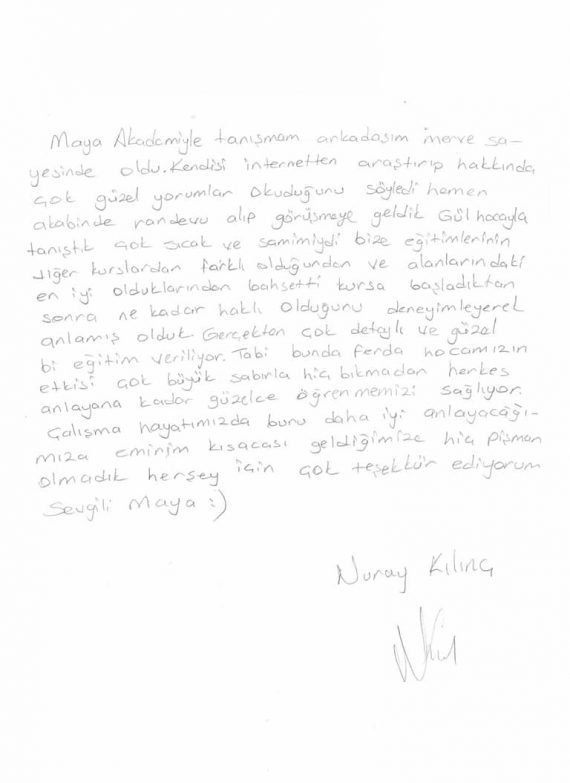 Maya Akademiyle tanışmam arkadaşım merve sa-
yesinde oldu. Kendisi internetten araştırıp hakkında
çok güzel yorumlar okuduğunu söyledi hemen
akabinde randevu alıp görüşmeye geldik Gül hocayla
tanıştık çok sıcak ve samimiydi bize eğitimlerinin
diğer kurslardan farklı olduğundan ve alanlarındaki
en iyi olduklarından bahsetti kursa başladıktan
sonra ne kadar haklı olduğunu deneyimleyerek
anlamış olduk. Gerçekten çok detaylı ve güzel
bi eğitim veriliyor. Tabi bunda ferda hocamızın
etkisi çok büyük sabırla hiç bıkmadan herkes
anlayana kadar güzelce öğrenmemizi sağlıyor.
Çalışma hayatımızda bunu daha iyi anlayacağı-
mıza eminim kısacası geldiğimize hiç pişman
olmadık herşey için çok teşekkür ediyorum
Sevgili Maya :)
Nuray Kılınç